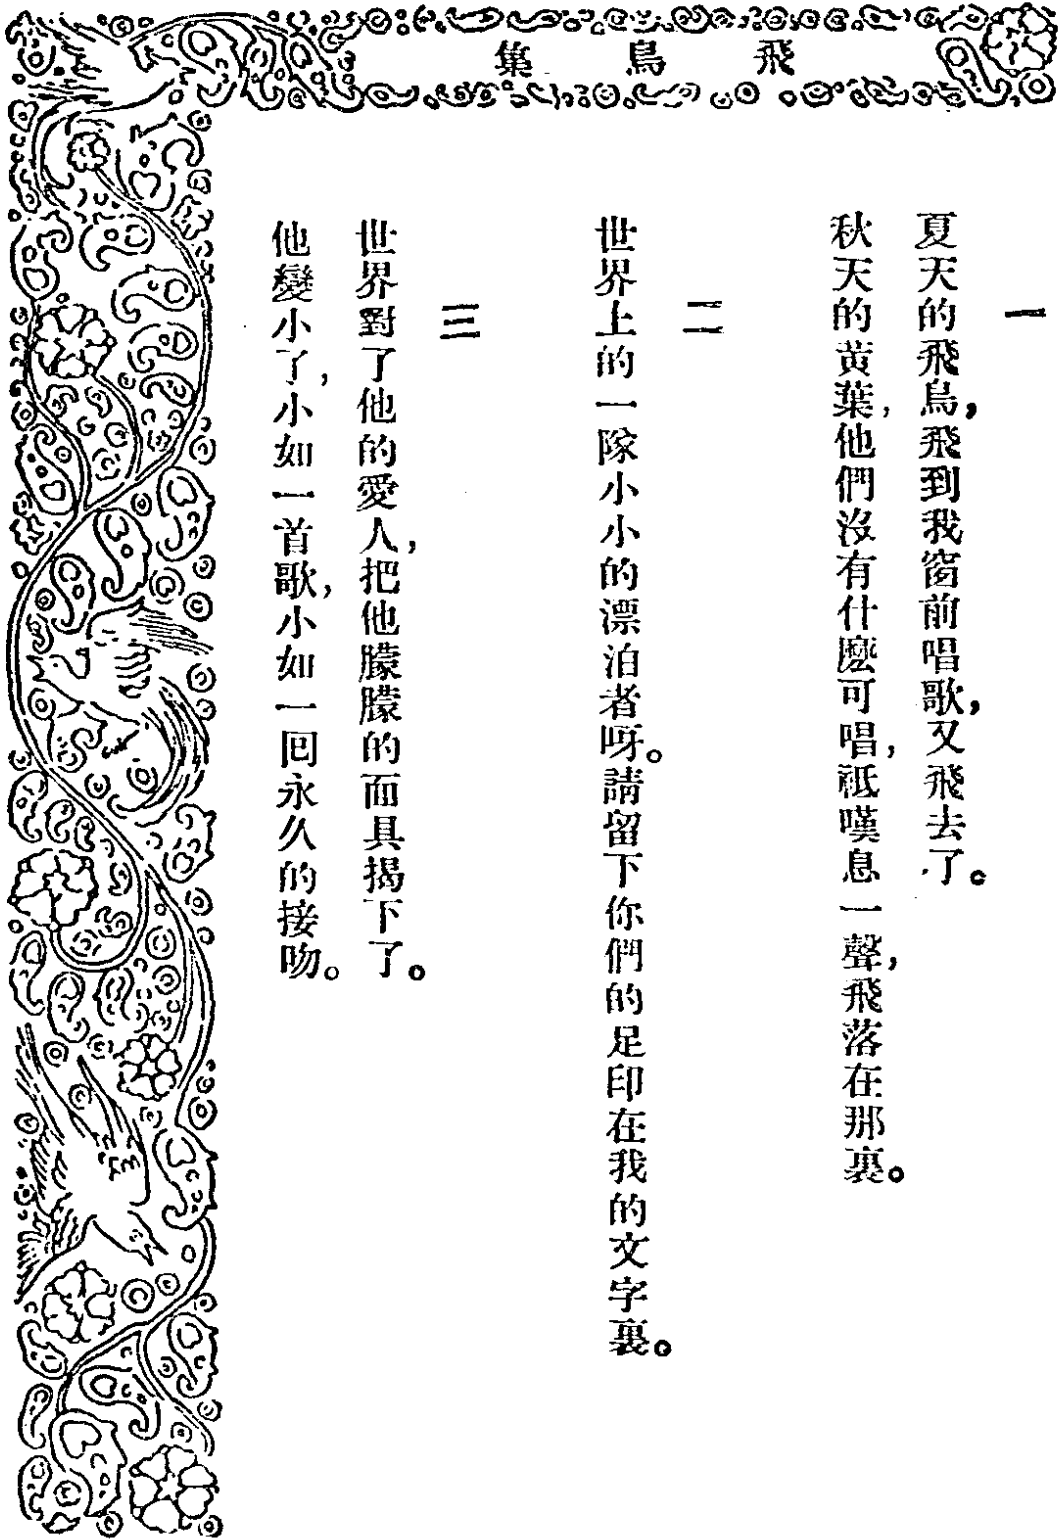 飛鳥集
一
夏天的飛鳥，飛到我窗前唱歌，又飛去了。
秋天的黃葉，他們沒有什麼可唱，祗嘆息一聲，飛落在那裏。
二
世界上的一隊小小的漂泊者呀。請留下你們的足印在我的文字裏。
三
世界對了他的愛人，把他朦朦的面具揭下了。
他變小了，小如一首歌，小如一回永久的接吻。